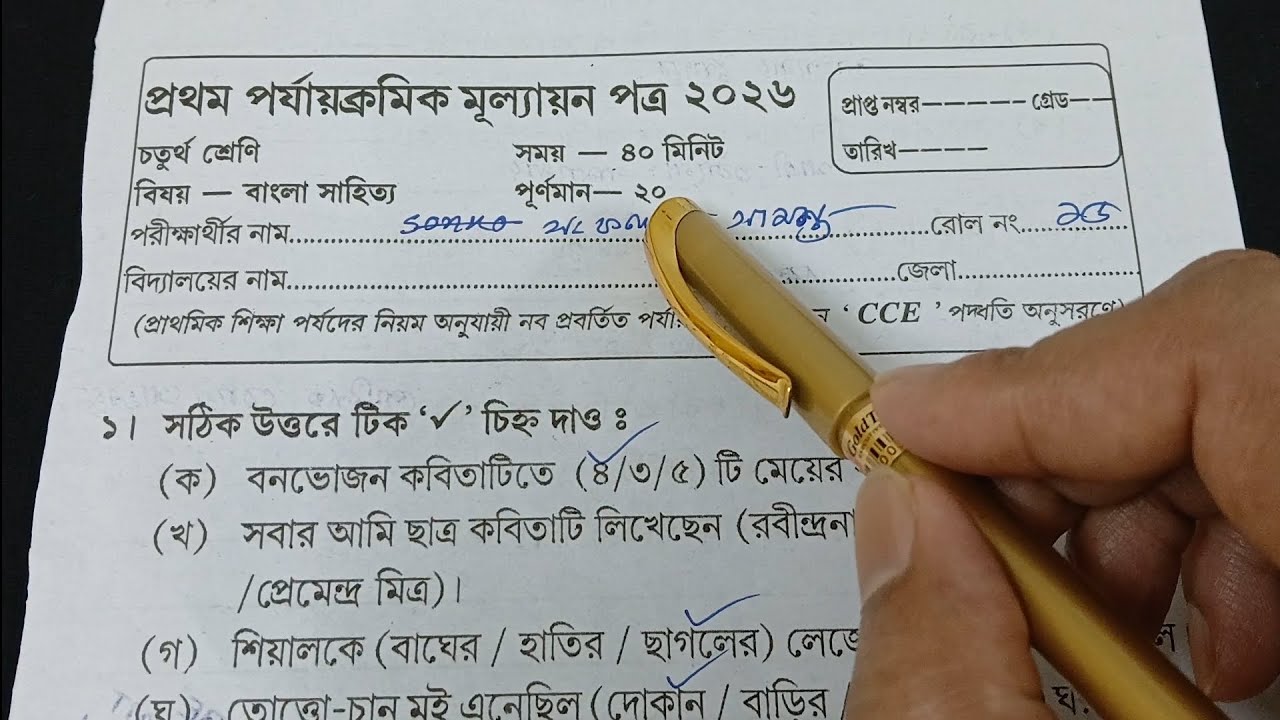 প্রথম পর্যায়ক্রমিক মূল্যায়ন পত্র ২০২৬
প্রাপ্ত নম্বর------ গ্রেড--
চতুর্থ শ্রেণি সময় — ৪০ মিনিট
তারিখ----
বিষয় — বাংলা সাহিত্য পূর্ণমান— ২০
পরীক্ষার্থীর নাম.......... রোল নং..........
বিদ্যালয়ের নাম.......... জেলা..........
(প্রাথমিক শিক্ষা পর্যদের নিয়ম অনুযায়ী নব প্রবর্তিত ‘ CCE ’ পদ্ধতি অনুসরণে)
১। সঠিক উত্তরে টিক ‘✓’ চিহ্ন দাও ঃ
(ক) বনভোজন কবিতাটিতে (৪/৩/৫) টি মেয়ের
(খ) সবার আমি ছাত্র কবিতাটি লিখেছেন
/প্রেমেন্দ্র মিত্র)।
(গ) শিয়ালকে (বাঘের / হাতির / ছাগলের)
(ঘ) তোত্তো-চান মই এনেছিল (দোকান / বাড়ির /
Gold